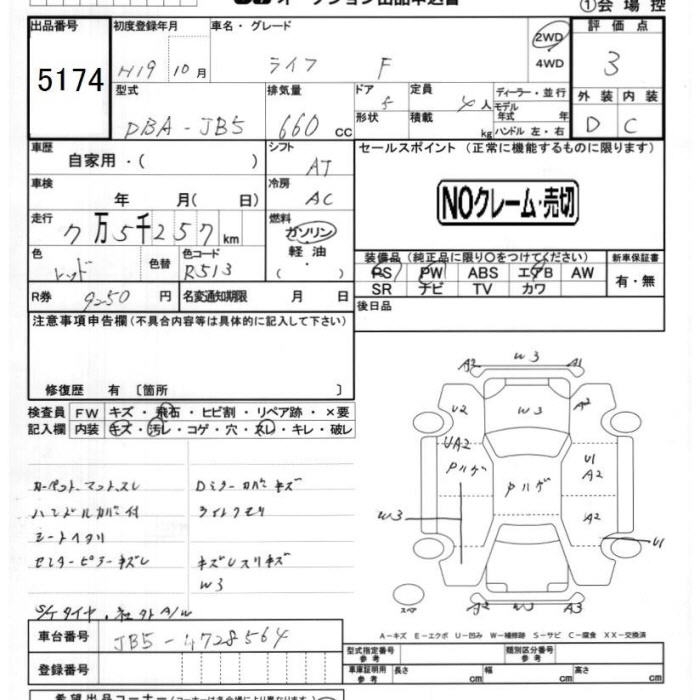 オークション出品申込書
①会場控
出品番号 初度登録年月 車名・グレード 評価点
5174 H19 10月 ライフ F 2WD 4WD 3
型式 排気量 ドア 定員 ディーラー・並行 外装 内装
DBA-JB5 660cc 5 4人 モデル年式 年 D C
形状 積載 kg ハンドル 左・右
車歴 シフト セールスポイント (正常に機能するものに限ります)
自家用・( ) AT
車検 冷房
年 月( 日) AC
NOクレーム・売切
走行 燃料
7万5千257km ガソリン
軽油
・( )
色 色替 色コード
レッド R513
装備品(純正品に限り○をつけてください) 新車保証書
PS PW ABS エアB AW 有・無
SR ナビ TV カワ
R券 9250円 名変通知期限 月 日
後日品
注意事項申告欄(不具合内容等は具体的に記入して下さい)
修復歴 有 〔箇所 〕
検査員 FW キズ・飛石・ヒビ割・リペア跡・×要
記入欄 内装 キズ・汚レ・コゲ・穴・スレ・キレ・破レ
カーペットマットスレ Dミラーカバーキズ
ハンドルカバー付 ライトクモリ
シートヘタリ
センターピラーキズレ キズレスリキズ
W3
S/Tタイヤ、社外A/W
A2 W3 A1
U2 W3 A2
UA2 U1
Pハゲ Pハゲ A2
W3 A2
U1
スペア A2 W3 A3
A-キズ E-エクボ U-凹み W-補修跡 S-サビ C-腐食 XX-交換済
車台番号 JB5-4728564
型式指定番号 参考 類別区分番号 参考
登録番号
車庫証明用 参考 長さ cm 幅 cm 高さ cm
希望出品コーナー(コーナーは各会場により異なります)